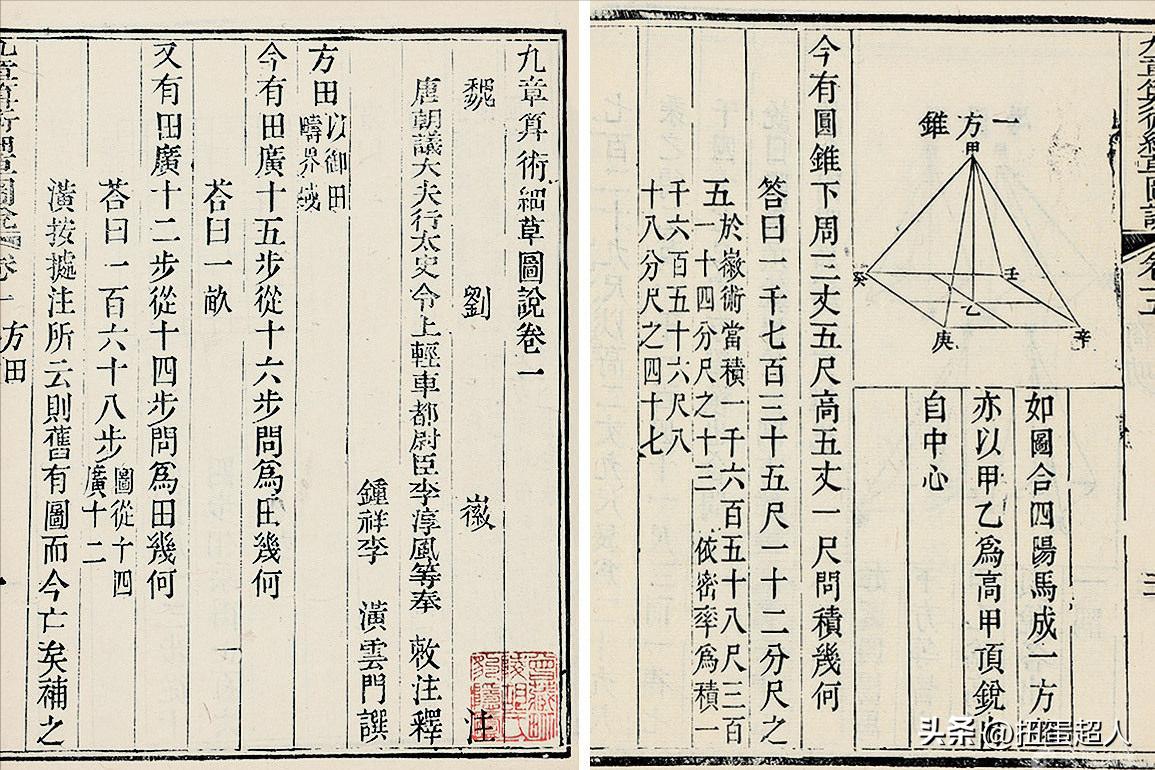 九章算術細草圖說卷一
魏 劉 徽 注
唐朝議大夫行太史令上輕車都尉臣李淳風等奉 敕注釋
鍾祥李 潢雲門譔
方田
以御田
疇界域
今有田廣十五步從十六步問爲田幾何
荅曰一畝
又有田廣十二步從十四步問爲田幾何
荅曰一百六十八步
圖從十四
廣十二
潢按據注所云則舊有圖而今亡矣補之
卷一 方田
如圖合四陽馬成一方
亦以甲乙爲高甲頂銳
自中心
一方錐
甲
壬
癸
乙
庚
辛
今有圓錐下周三丈五尺高五丈一尺問積幾何
答曰一千七百三十五尺一十二分尺之
五
於徽術當積一千六百五十八尺三百
一十四分尺之十三 依密率爲積一
千六百五十六尺八
十八分尺之四十七
头条 @扭蛋超人